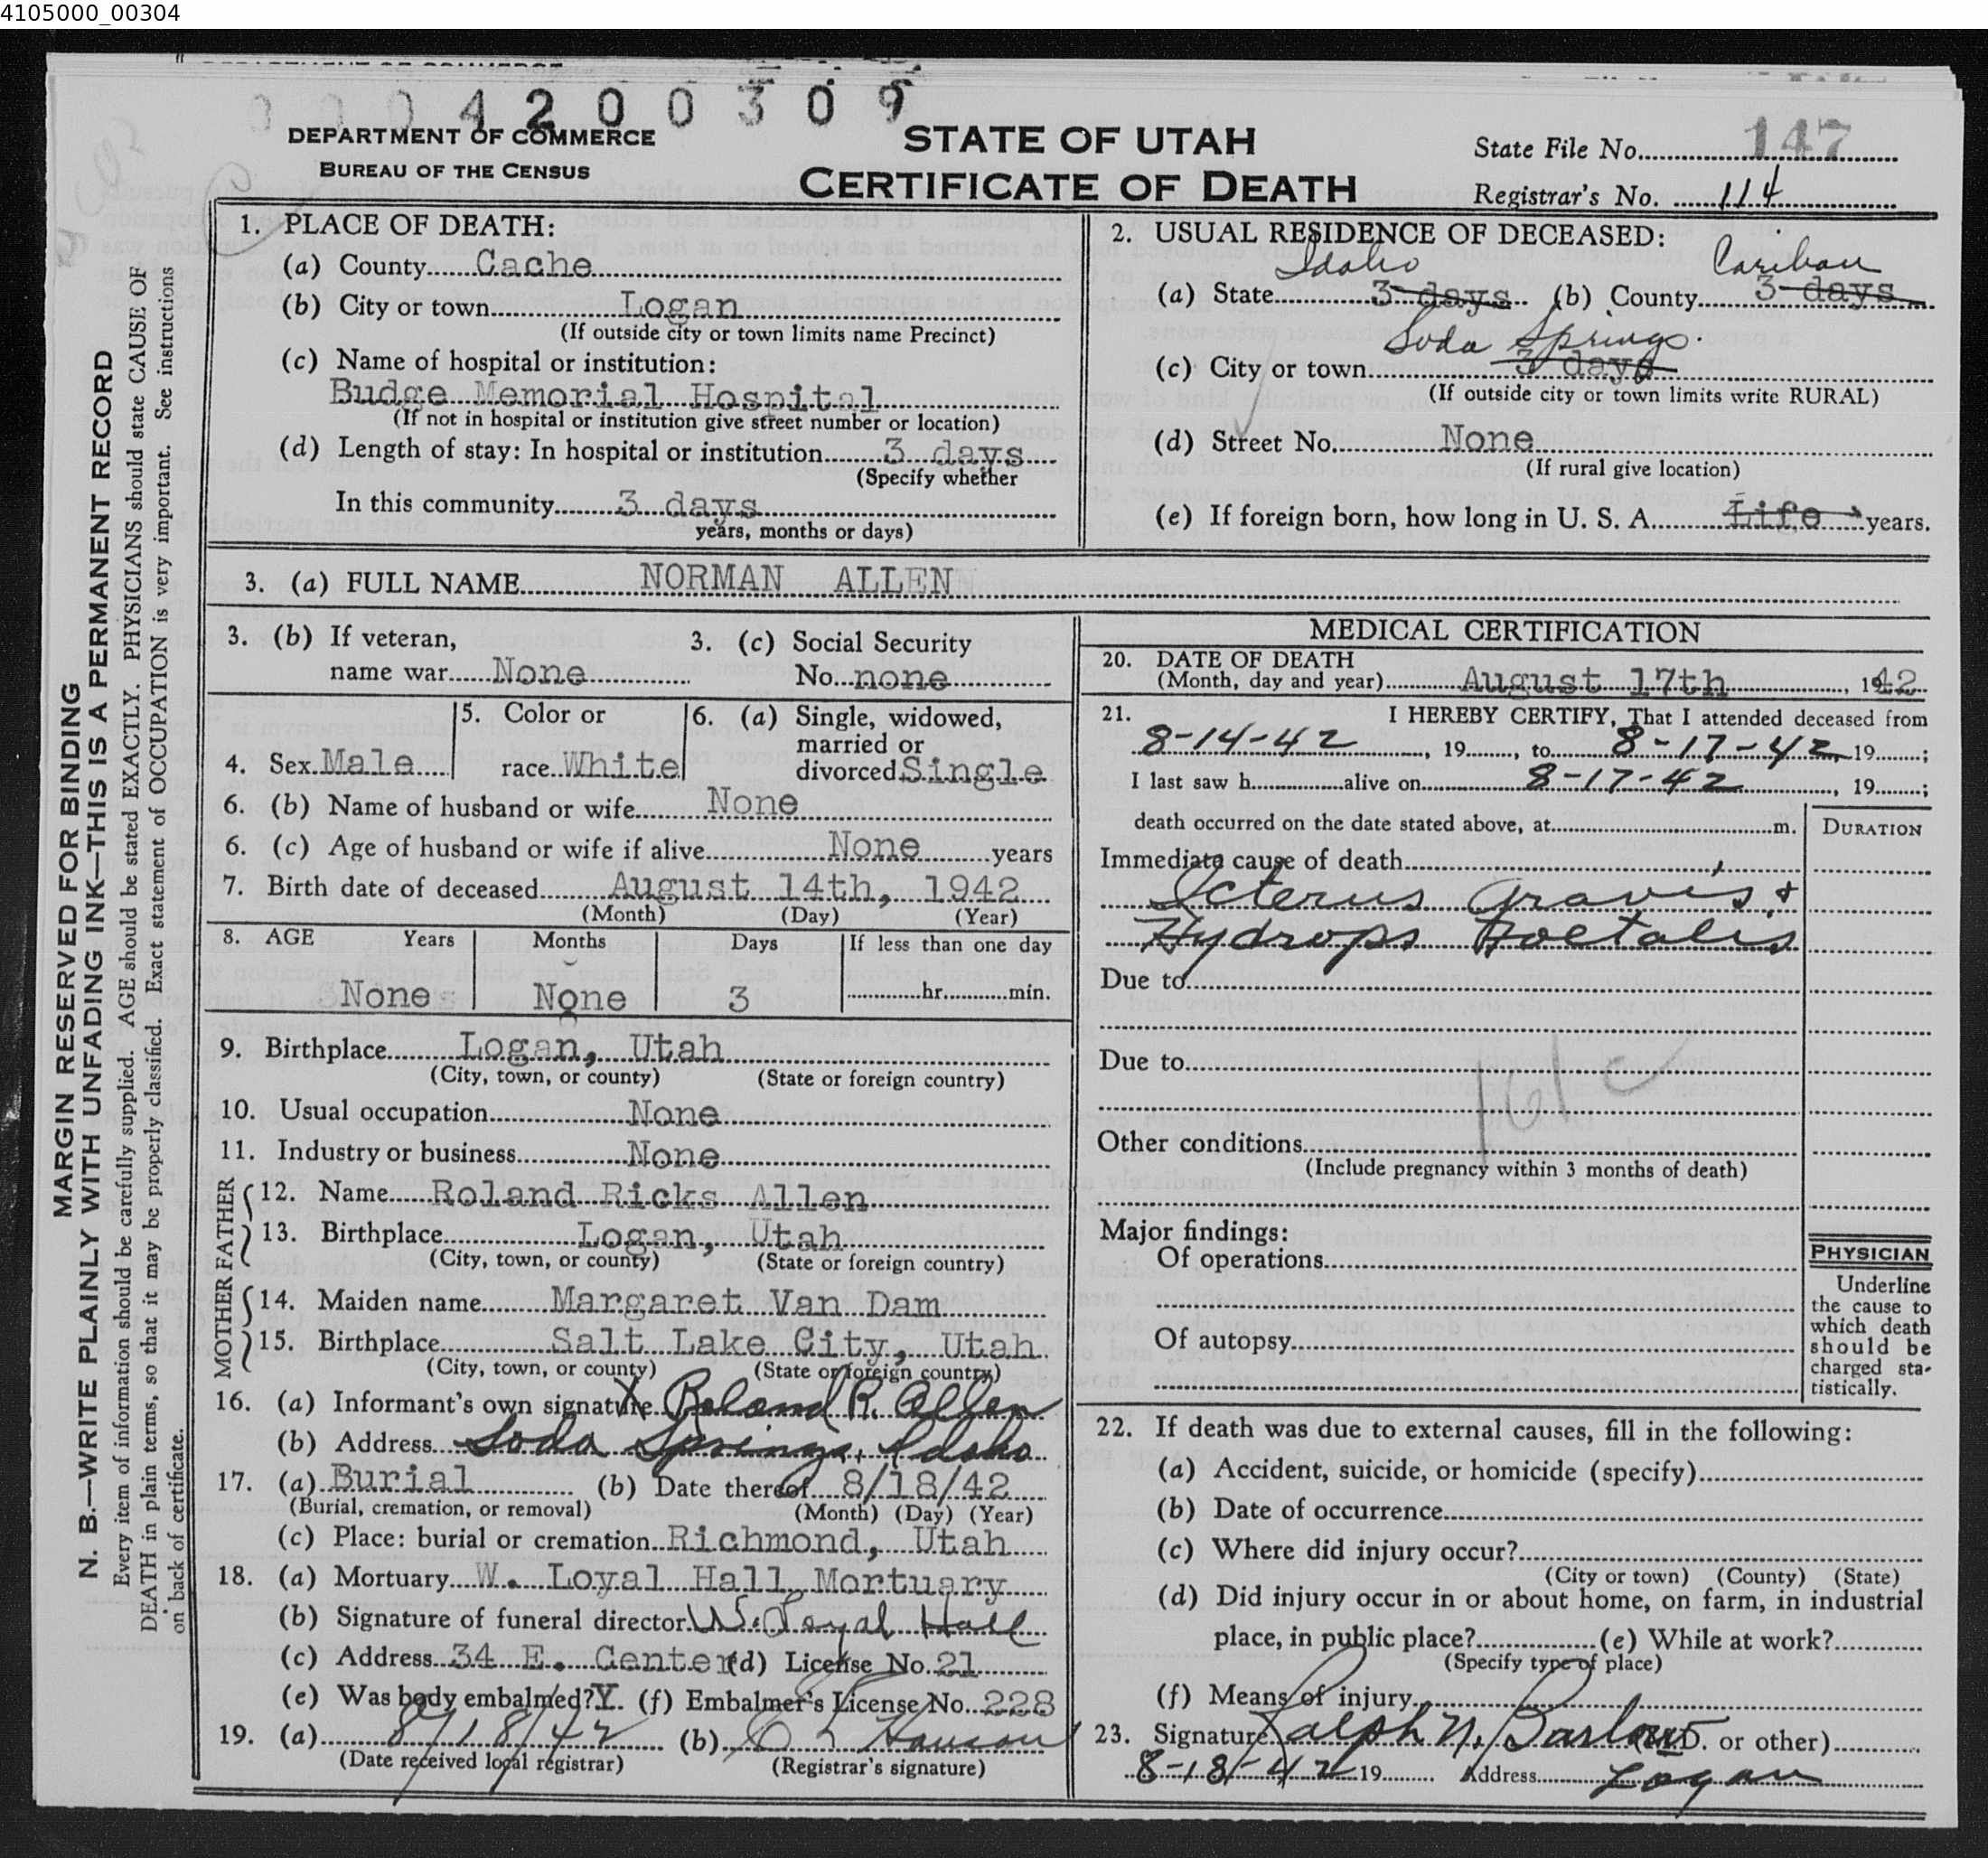 4105000_00304
0004200309
DEPARTMENT OF COMMERCE
BUREAU OF THE CENSUS
STATE OF UTAH
CERTIFICATE OF DEATH
State File No. 147
Registrar's No. 114
MARGIN RESERVED FOR BINDING
N. B.—WRITE PLAINLY WITH UNFADING INK—THIS IS A PERMANENT RECORD
Every item of information should be carefully supplied. AGE should be stated EXACTLY. PHYSICIANS should state CAUSE OF
DEATH in plain terms, so that it may be properly classified. Exact statement of OCCUPATION is very important. See instructions
on back of certificate.
1. PLACE OF DEATH:
(a) County Cache
(b) City or town Logan
(If outside city or town limits name Precinct)
(c) Name of hospital or institution:
Budge Memorial Hospital
(If not in hospital or institution give street number or location)
(d) Length of stay: In hospital or institution 3 days
(Specify whether
In this community 3 days
years, months or days)
2. USUAL RESIDENCE OF DECEASED:
Idaho Caribou
(a) State 3 days (b) County 3 days
Soda Springs.
(c) City or town 3 days
(If outside city or town limits write RURAL)
(d) Street No. None
(If rural give location)
(e) If foreign born, how long in U. S. A. Life years.
3. (a) FULL NAME NORMAN ALLEN
3. (b) If veteran,
name war None
3. (c) Social Security
No. none
4. Sex Male
5. Color or
race White
6. (a) Single, widowed,
married or
divorced Single
6. (b) Name of husband or wife None
6. (c) Age of husband or wife if alive None years
7. Birth date of deceased August 14th, 1942
(Month) (Day) (Year)
8. AGE Years Months Days If less than one day
None None 3 hr. min.
9. Birthplace Logan, Utah
(City, town, or county) (State or foreign country)
10. Usual occupation None
11. Industry or business None
FATHER
12. Name Roland Ricks Allen
13. Birthplace Logan, Utah
(City, town, or county) (State or foreign country)
MOTHER
14. Maiden name Margaret Van Dam
15. Birthplace Salt Lake City, Utah
(City, town, or county) (State or foreign country)
16. (a) Informant's own signature X Roland R. Allen
(b) Address Soda Springs, Idaho
17. (a) Burial (b) Date thereof 8/18/42
(Burial, cremation, or removal) (Month) (Day) (Year)
(c) Place: burial or cremation Richmond, Utah
18. (a) Mortuary W. Loyal Hall Mortuary
(b) Signature of funeral director W. Loyal Hall
(c) Address 34 E. Center (d) License No. 21
(e) Was body embalmed? Y. (f) Embalmer's License No. 228
19. (a) 8/18/42 (b)
(Date received local registrar) (Registrar's signature)
MEDICAL CERTIFICATION
20. DATE OF DEATH
(Month, day and year) August 17th, 1942
21. I HEREBY CERTIFY, That I attended deceased from
8-14-42, 19, to 8-17-42, 19;
I last saw h alive on 8-17-42, 19;
death occurred on the date stated above, at m.
DURATION
Immediate cause of death
Icterus Gravis &
Hydrops Foetalis
Due to
Due to
161c
Other conditions
(Include pregnancy within 3 months of death)
Major findings:
Of operations
Of autopsy
PHYSICIAN
Underline
the cause to
which death
should be
charged sta-
tistically.
22. If death was due to external causes, fill in the following:
(a) Accident, suicide, or homicide (specify)
(b) Date of occurrence
(c) Where did injury occur?
(City or town) (County) (State)
(d) Did injury occur in or about home, on farm, in industrial
place, in public place? (e) While at work?
(Specify type of place)
(f) Means of injury
23. Signature Ralph N. Barlow (M.D. or other)
8-18-42 19 Address Logan